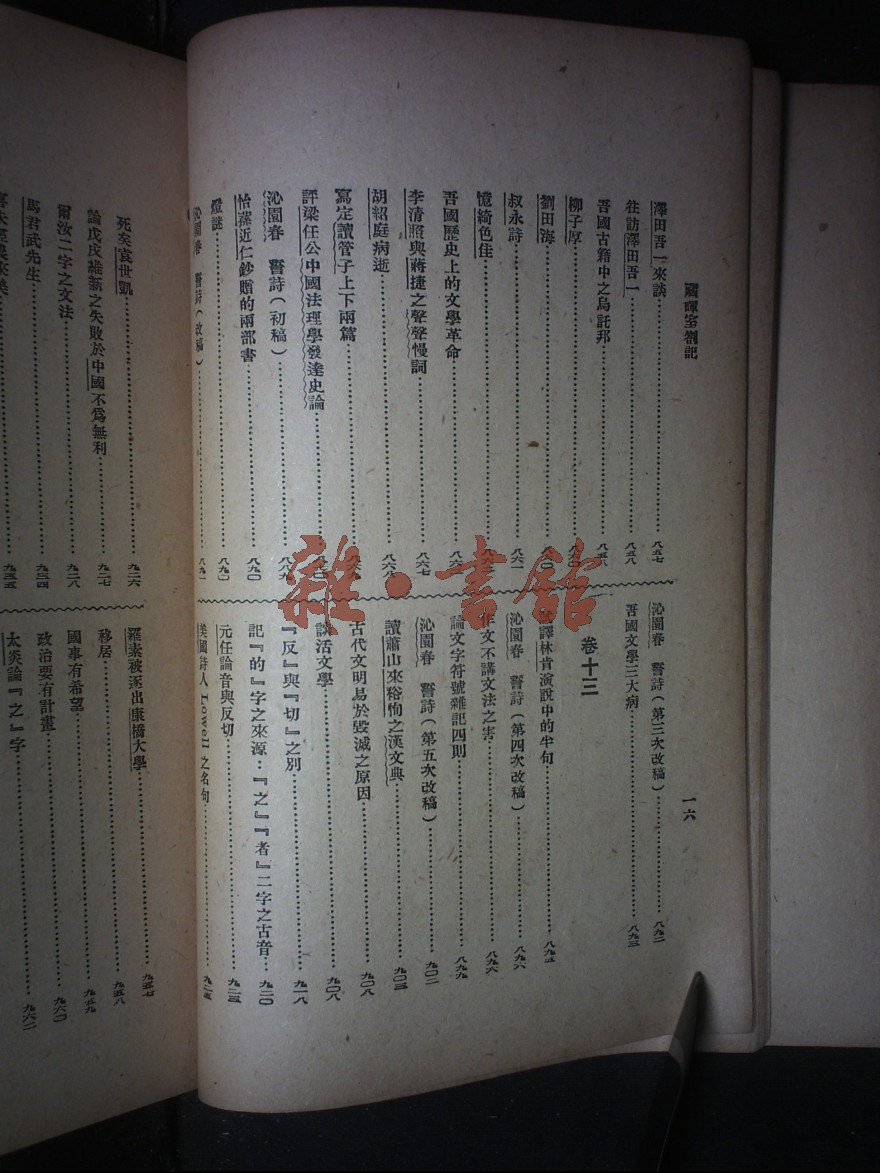 藏暉室劄記
一六
澤田吾一來談……八五七
往訪澤田吾一……八五八
吾國古籍中之烏託邦……八五八
柳子厚……八六〇
劉田海……八六〇
叔永詩……八六一
憶綺色佳
吾國歷史上的文學革命
李清照與蔣捷之聲聲慢詞……八六七
胡紹庭病逝……八六八
寫定讀管子上下兩篇
評梁任公中國法理學發達史論
沁園春 誓詩(初稿)……八八九
怡蓀近仁鈔贈的兩部書……八九〇
燈謎……八九〇
沁園春 誓詩(改稿)……八九一
沁園春 誓詩(第三次改稿)……八九二
吾國文學三大病……八九三
卷十三
試譯林肯演說中的半句……八九五
沁園春 誓詩(第四次改稿)……八九六
作文不講文法之害……八九六
論文字符號雜記四則……八九九
沁園春 誓詩(第五次改稿)……九〇二
讀蕭山來裕恂之漢文典……九〇三
古代文明易於毀滅之原因……九〇八
談活文學……九〇八
『反』與『切』之別……九一八
記『的』字之來源:『之』『者』二字之古音……九二〇
元任論音與反切……九二三
美國詩人 Lowell 之名句……九二五
死矣袁世凱……九二六
論戊戌維新之失敗於中國不爲無利……九二七
爾汝二字之文法……九二八
馬君武先生……九三四
九三五
羅素被逐出康橋大學……九五七
移居……九五八
國事有希望……九五九
政治要有計畫……九六〇
太炎論『之』字……九六二
雜·書館